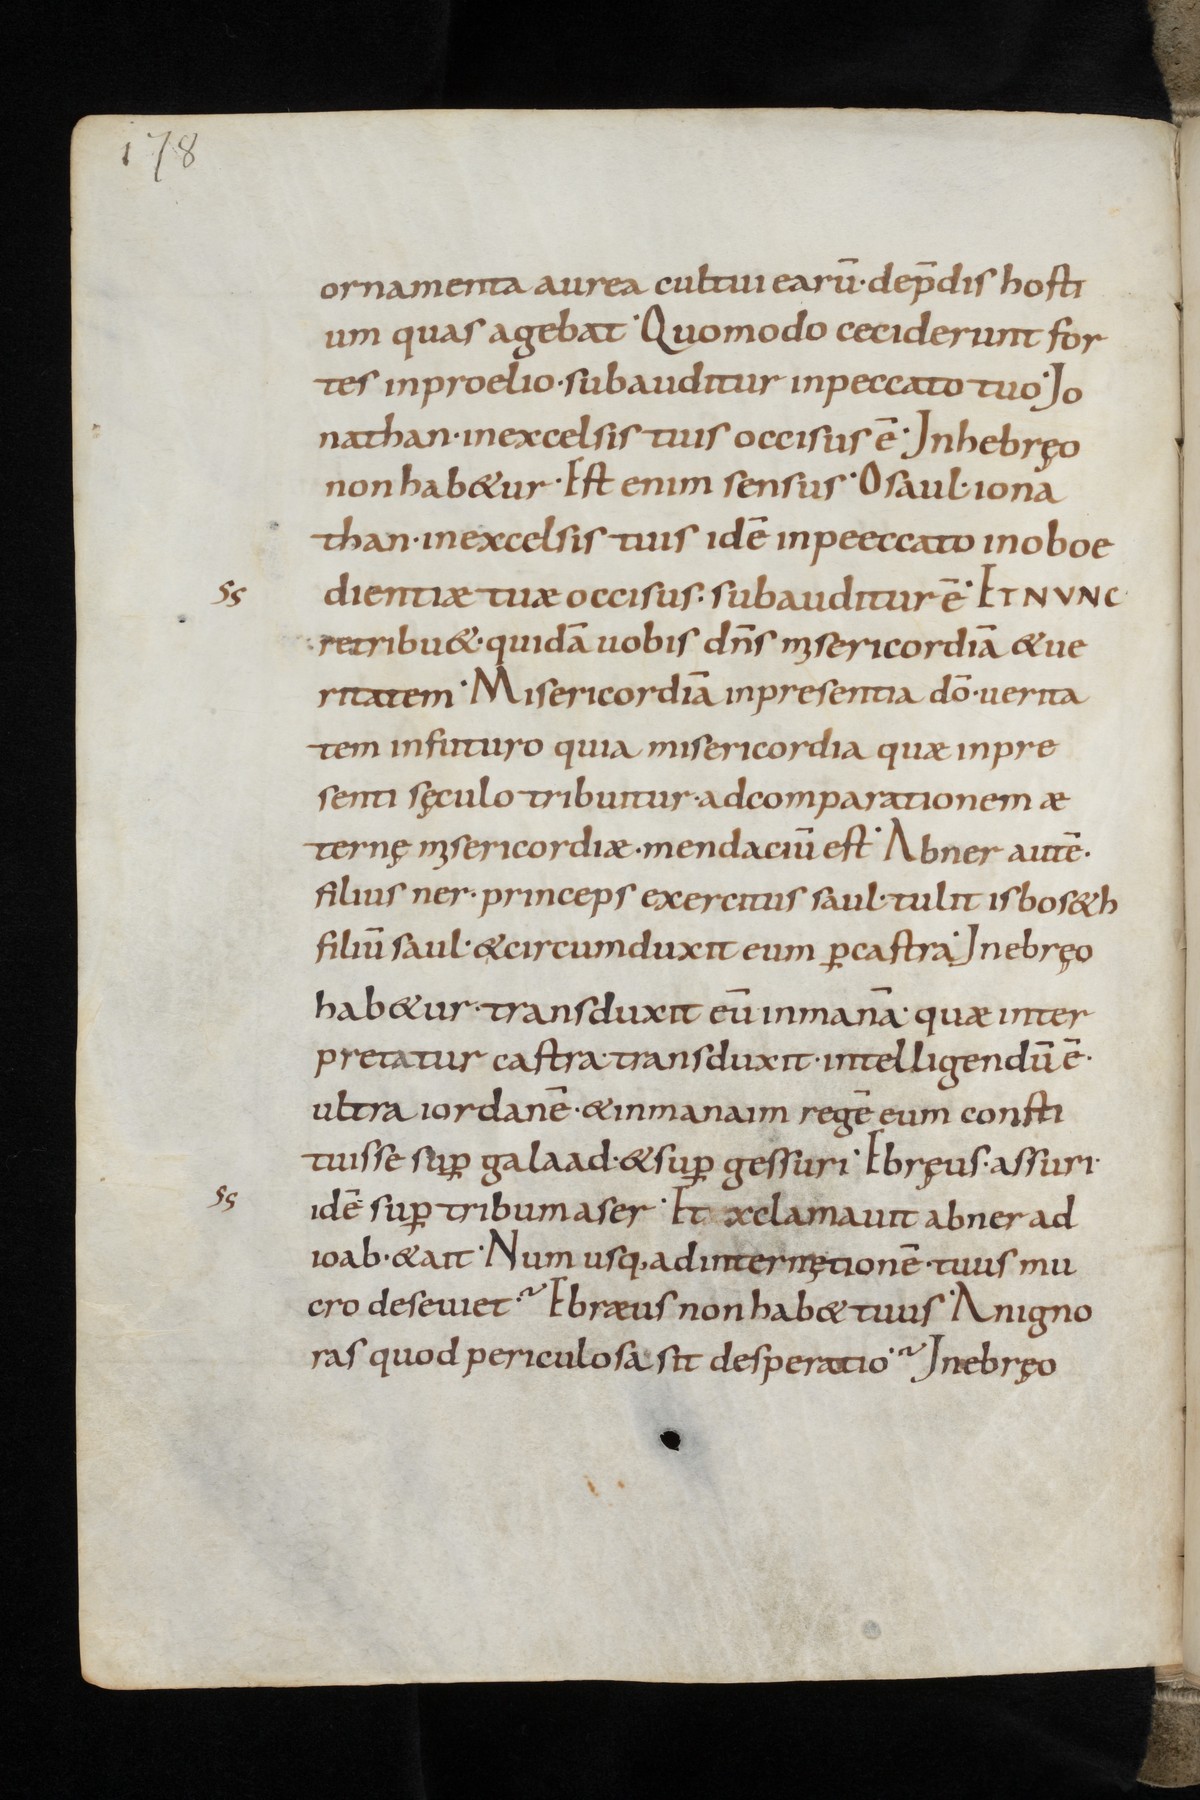 178
ornamenta aurea cultui earū· dep̄dis hosti
um quas agebat· Quomodo ceciderunt for
tes inproelio· subauditur inpeccato tuo· Jo
nathan· inexcelsis tuis occisus ē· Jnhebręo
non hab&ur· Est enim sensus· O saul· iona
than· inexcelsis tuis idē inpeeccato inoboe
ss dientiæ tuæ occisus· subauditur ē· ET NVNC
retribu&· quidā uobis dn̄s mısericordiā &ue
ritatem· Misericordiā inpresentia dō· uerita
tem infuturo quia misericordia quæ inpre
senti sęculo tribuitur· adcomparationem æ
ternę mısericordiæ· mendaciū est· Abner autē·
filius ner· princeps exercitus saul· tulit isbos&h
filiū saul· &circumduxit eum ꝑcastra· Jnebręo
hab&ur· transduxit eū inmanā· quæ inter
pretatur castra· transduxit· intelligendū ē·
ultra iordanē· &inmanaim regē eum consti
tuisse suꝑ galaad· &suꝑ gessuri· Ebręus· assuri·
ss idē suꝑ tribum aser· Et xclamauit abner ad
ioab· &ait· Num usq, adinternętionē· tuus mu
cro deseuiet·~ Ebræus non hab& tuus· Anigno
ras quod periculosa sit desperatio·~ Jnebręo